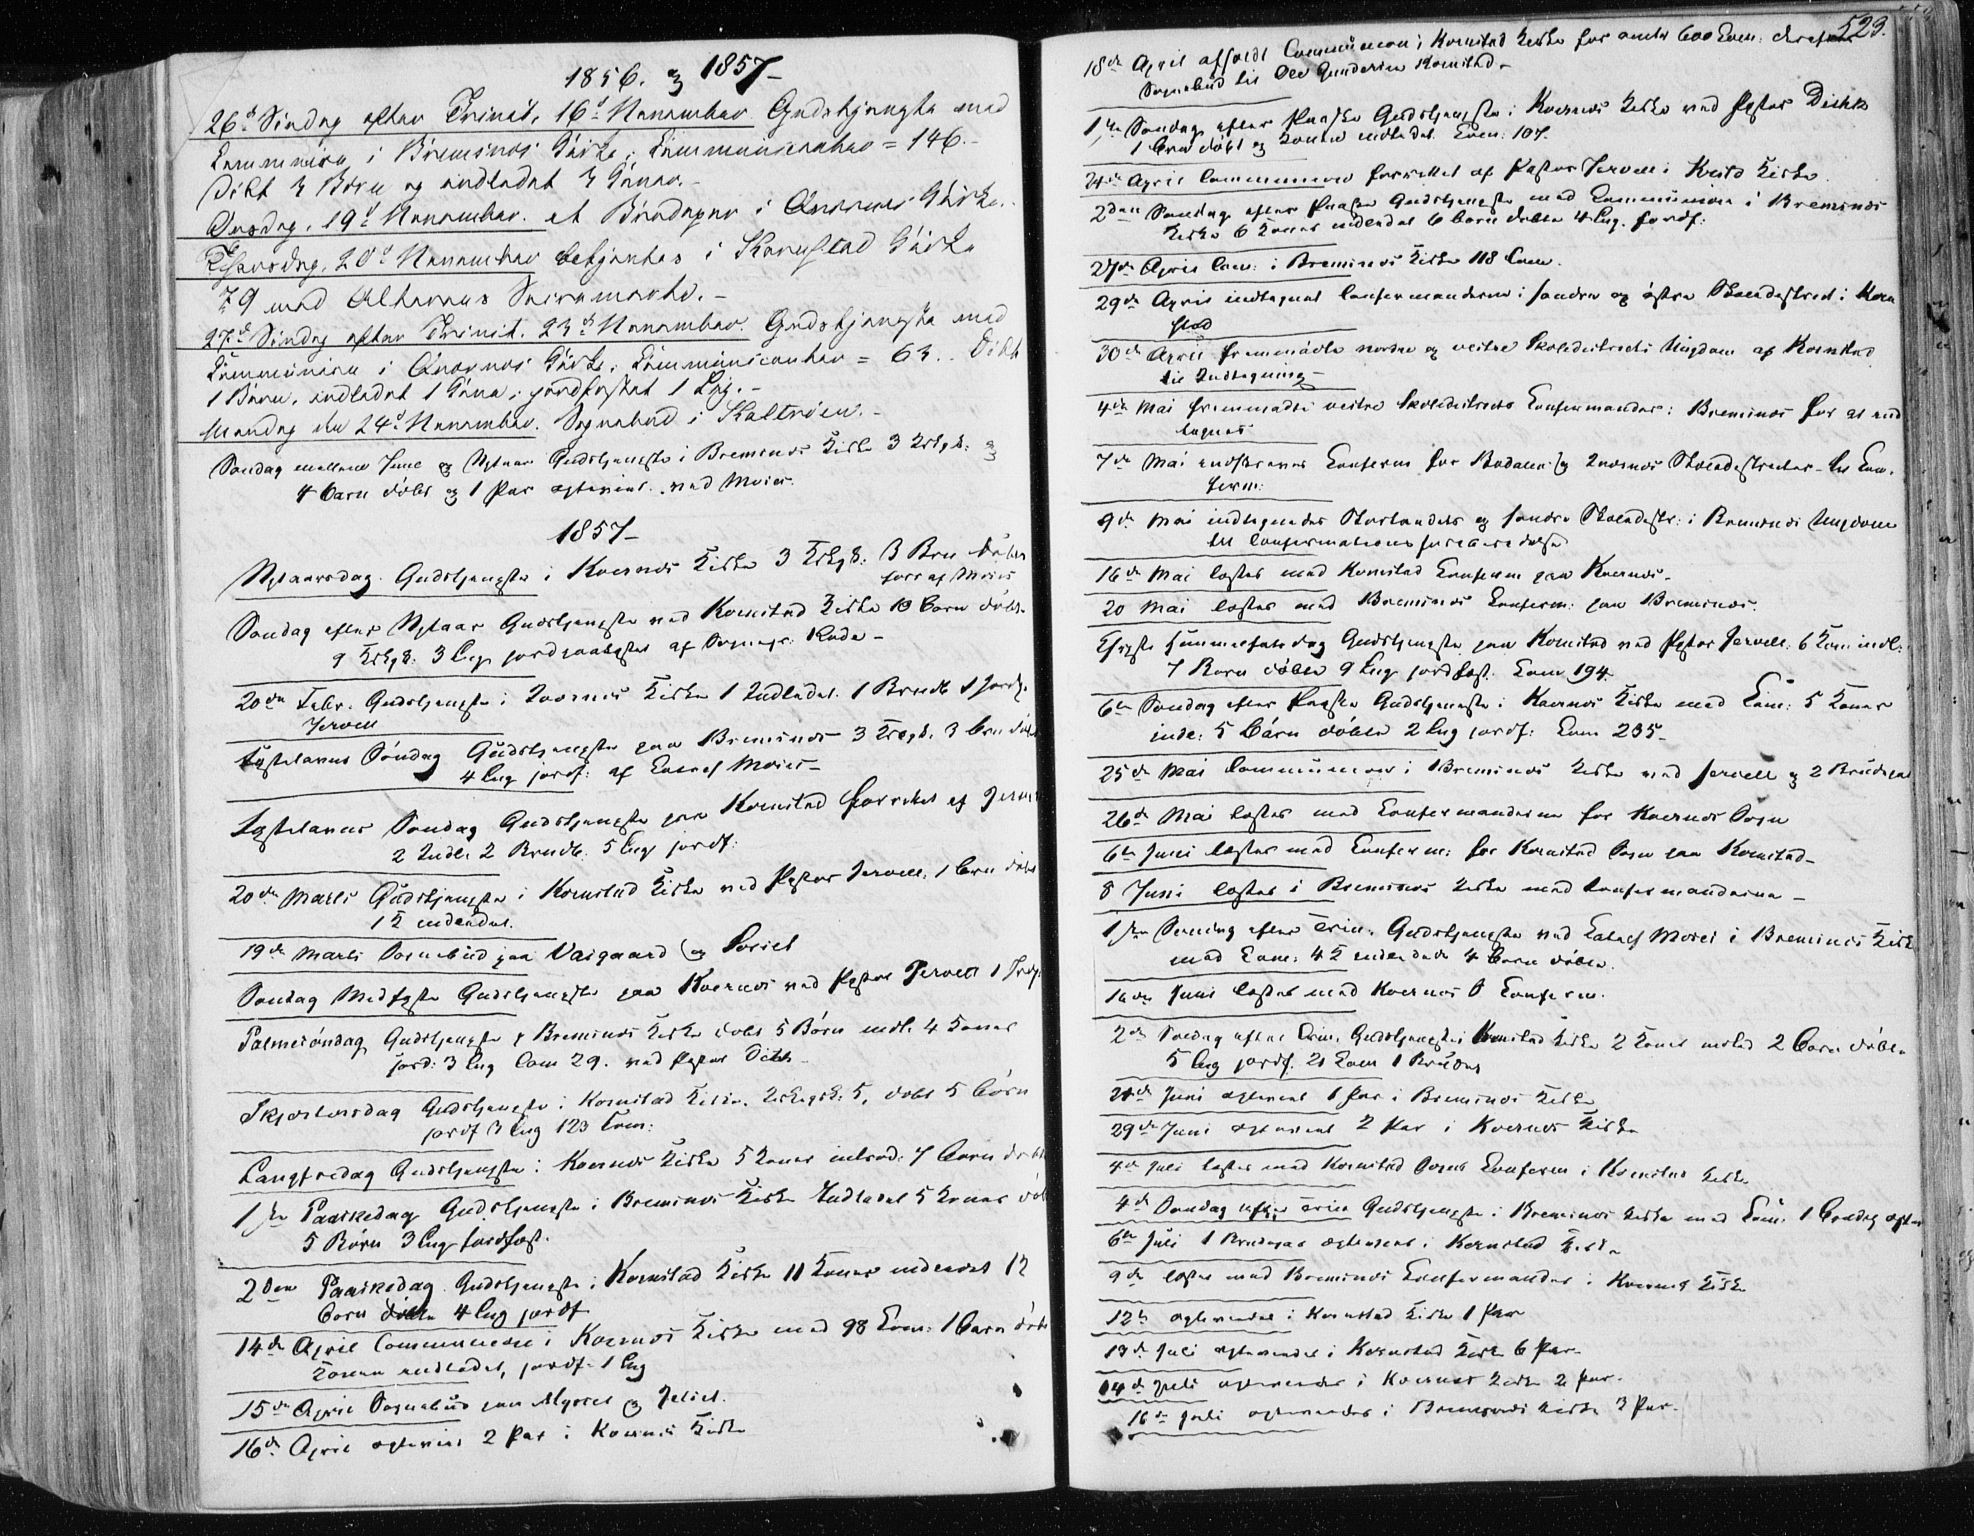 1856. og 1857-
26d Söndag efter Trinit, 16d November Gudstjeneste med
Communion i Bremsnes Kirke; Communicanter = 146.-
Döbt 3 Börn og indledet 3 Koner.-
Onsdag, 19d November. et Brudepar i Qværnes Kirke.-
Thorsdag, 20d November betjentes i Kornstad Kirke
79 med Alterens Sacramente.-
27d Söndag efter Trinit. 23d November. Gudstjeneste med
Communion i Qværnes Kirke; Communicanter = 63. Döbt
1 Barn, indledet 1 Kone; jordfæstet 1 Lig.-
Mandag den 24d November. Sognebud i
Søndag mellem Juul og Nytaar Gudstjeneste i Bremsnes Kirke 3 og
4 Børn døbt og 1 Par ægteviet. ved Moses
1857-
Nytaarsdag. Gudstjeneste i Kvernes Kirke 3 3 Børn døbte
Søndag efter Nytaar Gudstjeneste ved Kornstad Kirke 10 Børn døbt.
9 3 Lig jordpaakastet af
20de Febr. Gudstjeneste i Kvernes Kirke 1 Indledet. 1 Brudt
Jervell
Fastelavns Søndag Gudstjeneste paa Bremsnes 3 3 Børn døbt
4 Lig jordf: af
Fastelavns Søndag Gudstjeneste paa Kornstad forrettet af Jervell
2 Indl. 2 Brudt. 5 Lig jordf.
20de Marts Gudstjeneste i Kornstad Kirke ved Pastor Jervell. 1 Barn døbt
1 K indledet.
19de Marts Sognebud paa Vaagaard og
Søndag Midfaste Gudstjeneste paa Kvernes ved Pastor Jervell 1
Palmesøndag Gudstjeneste i Bremsnes Kirke døbt 5 Børn indl. 4 Koner
jord: 3 Lig Com 29. ved Pastor
Skjærtorsdag Gudstjeneste i Kornstad Kirke. 5, døbt 5 Børn
jordf 3 Lig 123 Com:
Langfredag Gudstjeneste i Kvernes Kirke 5 Koner introd: 7 Børn døbt
1ste Paaskedag Gudstjeneste i Bremsnes Kirke Indledet 5 Koner døbt
5 Børn 3 Lig jordfæst.
2den Paaskedag Gudstjeneste i Kornstad Kirke 11 Koner indledet 12
Børn døbte 4 Lig jordf
14de April Communion i Kvernes Kirke med 98 Com: 1 Barn døbt
Konen indledet, jordf. 1 Lig
15de April Sognebud paa og
16de April ægteviet 2 Par i Kvernes Kirke
523.
18de April afholdt Communion i Kornstad Kirke for omtr 600 Com: derefter
Sognebud til Ole Gundersen Kornstad-
1ste Søndag efter Paaske Gudstjeneste i Kvernes Kirke ved Pastor
1 Barn døbt og Konen indledet. Com: 107.
24de April Communion forrettet af Pastor Jervell i Kirke
2den Søndag efter Paaske Gudstjeneste med Communion i Bremsnes
Kirke 6 Koner indledet 6 Børn døbte 4 Lig. jordf:
27de April Com: i Bremsnes Kirke 118 Com.
29de April indtegnet Confirmanderne i søndre og østre Skoledistrict i Korn
stad
30de April fremmødte nordre og vestre Skoledistricts Ungdom af Kornstad
til Indtegning-
4de Mai fremmødte vestre Skoledistricts Confirmander i Bremsnes for at ind
tegnes
7de Mai Confirm for og Skoledistricter til Con-
firm:
9de Mai indtegnedes og søndre Skoledistr: i Bremsnes Ungdom
til Confirmationsforberedelse
16de Mai læstes med Kornstad Confirm paa Kvernes-
20 Mai læstes med Bremsnes Confirm: paa Bremsnes.
Christi Himmelfartsdag Gudstjeneste paa Kornstad ved Pastor Jervell. 6 Kon: indl.
7 Børn døbte 9 Lig jordfæst. Com 194.
6te Søndag efter Paaske Gudstjeneste i Kvernes Kirke med Com: 5 Koner
indl: 5 Børn døbte 2 Lig jordf: Com 235-
25de Mai Communion i Bremsnes Kirke ved Jervell og 2 Brudepar
26de Mai læstes med Confirmanderne for Kvernes Sogn
6te Juni læstes med Confirm: for Kornstad Sogn paa Kornstad-
8 Juni læstes i Bremsnes Kirke med Confirmanderne-
1ste Søndag efter Trin. Gudstjeneste ved i Bremsnes Kirke
med Com: 4 K indledede 4 Børn døbte.
Juni læstes med Kvernes S Confirm.
2de Søndag efter Trin. Gudstjeneste i Kornstad Kirke 2 Koner indled 2 Børn døbte
5 Lig jordf. 21 Com 1 Brudep
Juni ægteviet 1 Par i Bremsnes Kirke
29de Juni ægteviet 2 Par i Kvernes Kirke
4de Juli læstes med Kornstad Sogns Confirm i Kornstad Kirke
4de Søndag efter Trin Gudstjeneste i Bremsnes Kirke med Com:
6te Juli 1 Brudepar ægteviet i Kornstad Kirke
9de læstes med Bremsnes Confirmander i Kvernes Kirke
12te ægteviedes i Kornstad Kirke 1 Par
13de Juli ægteviedes i Kornstad Kirke 6 Par-
14de Juli ægteviedes i Kvernes Kirke 2 Par.
16de Juli ægteviedes i Bremsnes Kirke 3 Par.